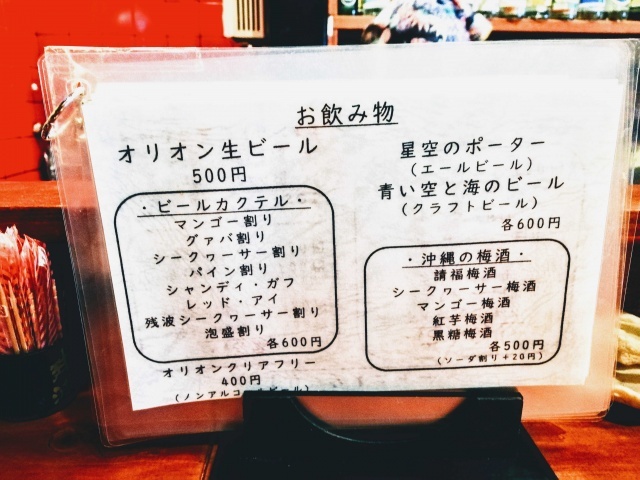 お飲み物
オリオン生ビール
500円
・ビールカクテル・
マンゴー割り
グァバ割り
シークヮーサー割り
パイン割り
シャンディ・ガフ
レッド・アイ
残波シークヮーサー割り
泡盛割り
各600円
オリオンクリアフリー
400円
(ノンアルコールビール)
星空のポーター
(エールビール)
青い空と海のビール
(クラフトビール)
各600円
・沖縄の梅酒・
請福梅酒
シークヮーサー梅酒
マンゴー梅酒
紅芋梅酒
黒糖梅酒
各500円
(ソーダ割り+20円)